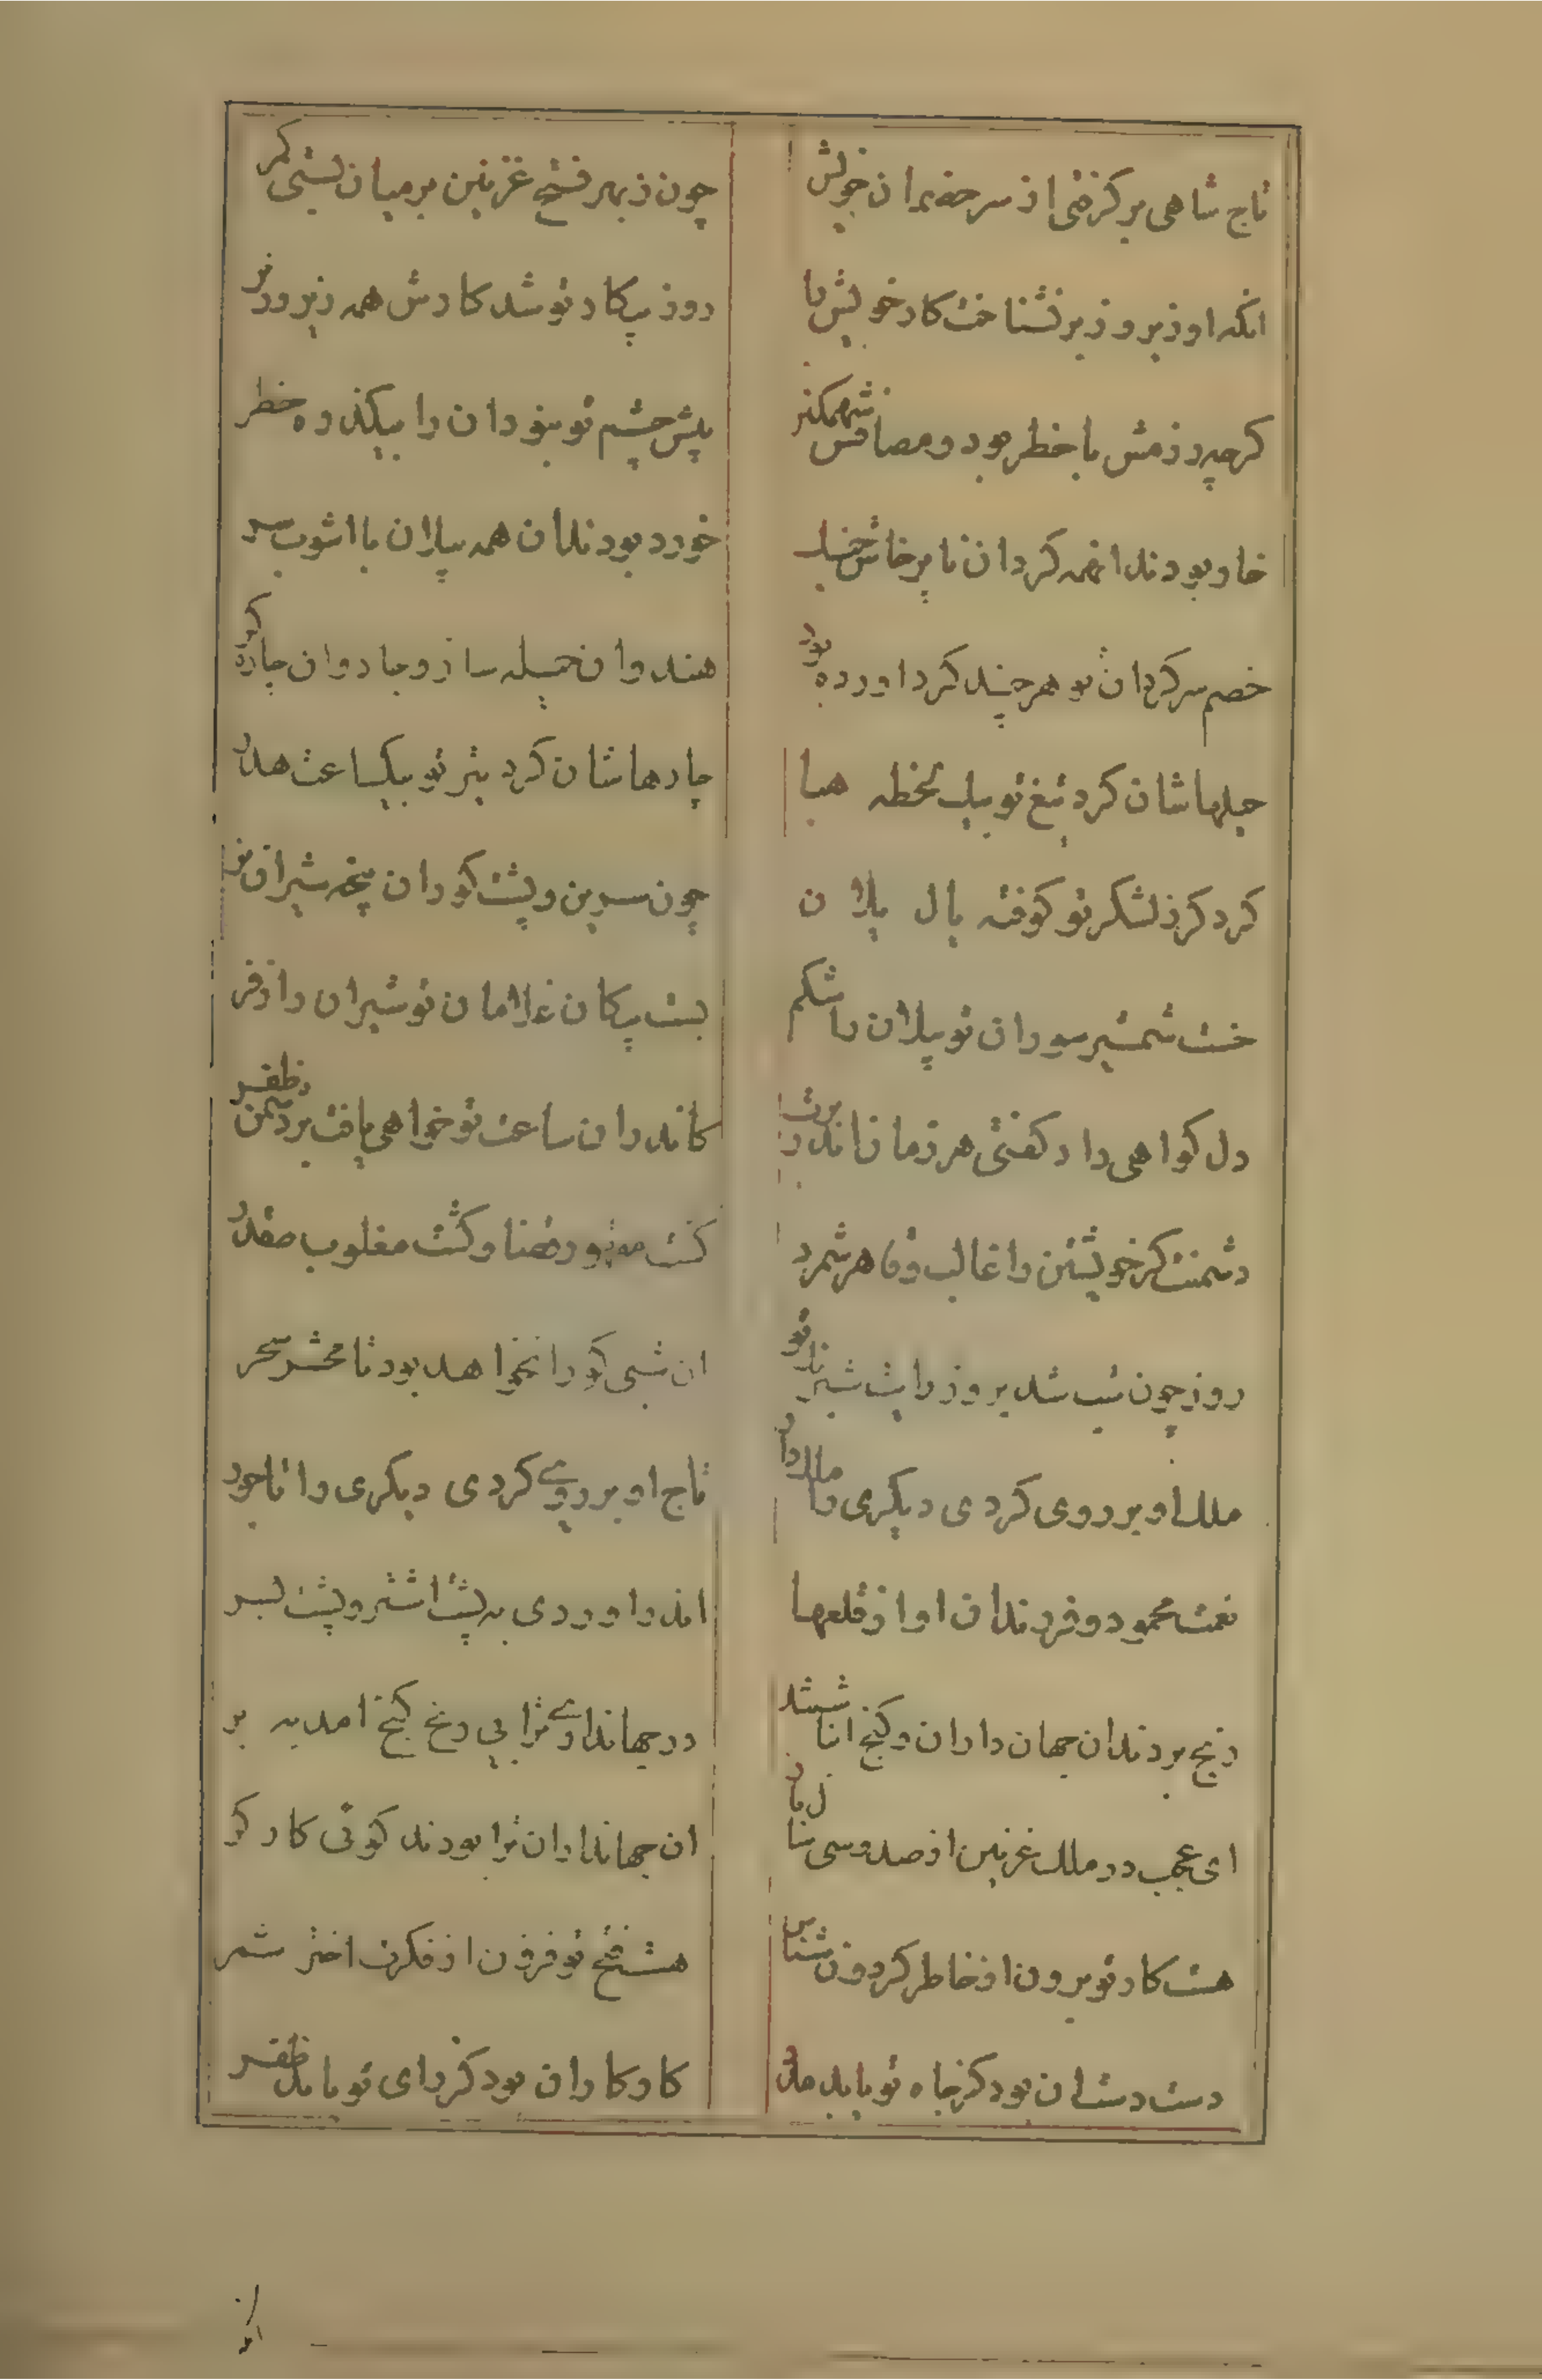 تاج شاهی برکرفتی از سر خصمان خویش
چون ز بهر فتح غزنین بر میان بستی کمر
انکه او زیر و زبر نشناخت کار خویش را
روز پیکار تو شد کارش همه زیر و زبر
کرچه رزمش با خطر بود و مصافش سهمکن
پیش چشم تو نبود ان را بیکذره خطر
خار بودند انهمه کردان با پرخاش جنک
خورد بودند ان همه پیلان با اشوب سر
خصم سرکردان تو هر چند کرد اورده بود
هندوان حیله ساز و جادوان چاره کر
حیلهاشان کرد تیغ تو بیک لحظه هبا
چارهاشان کرد تیر تو بیکساعت هدر
کرد کرز لشکر تو کوفته یال یلان
چون سرین و پشت کوران پنجه شیران نر
خست شمشیر سواران تو پیلان را شکم
بست پیکان غلامان تو شیران را زفر
دل کواهی داد کفتی هر زمان اندر برت
کاندران ساعت تو خواهی یافت بر دشمن ظفر
دشمنت کر خویشتن را غالب و قاهر شمرد
کشت مقهور قضا و کشت مغلوب قدر
روز چون شب شد بر وز رایت شبرنک تو
ان شبی کو را نخواهد بود تا محشر سحر
ملک او بر روی کردی دیکری را ملک دار
تاج او بر روی کردی دیکری را تاجور
نعمت محمود و فرزندان او از قلعها
اندر اوردی به پشت اشتر و پشت ستر
رنج بردند ان جهان داران و کنج انباشتند
در جهانداری ترا بی رنج کنج امد به بر
ای عجب در ملک غزنین از صد و سی سال باز
ان جهانداران ترا بودند کوئی کار کر
هست کار تو برون از خاطر کردون شناس
هست فتح تو فزون از فکرت اختر شمر
دست دست ان بود کز جاه تو یابد مدد
کار کار ان بود کز رای تو یابد ظفر